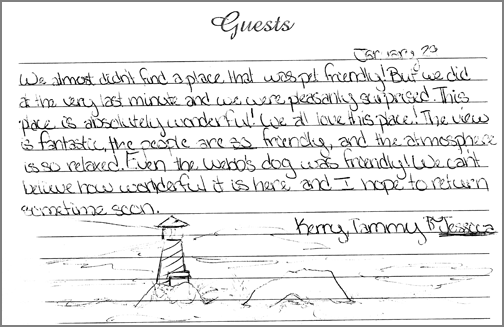 Guests
We almost didn't find a place that was pet friendly! But we did
at the very last minute and we were pleasantly surprised. This
place is absolutely wonderful! We all love this place! The view
is fantastic, the people are so friendly, and the atmosphere
is so relaxed. Even the webb's dog was friendly! We can't
believe how wonderful it is here and I hope to return
sometime soon.
Kerry, Tammy & Jessica